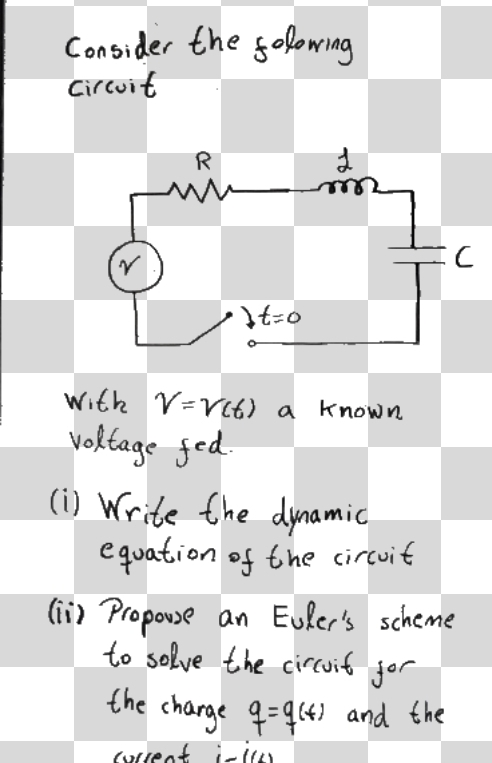 Consider the folowing
circuit
R
L
V
C
t=0
With V=V(t) a known
voltage fed.
(i) Write the dynamic
equation of the circuit
(ii) Propouse an Euler's scheme
to solve the circuit for
the charge q=q(t) and the
current i=i(t)